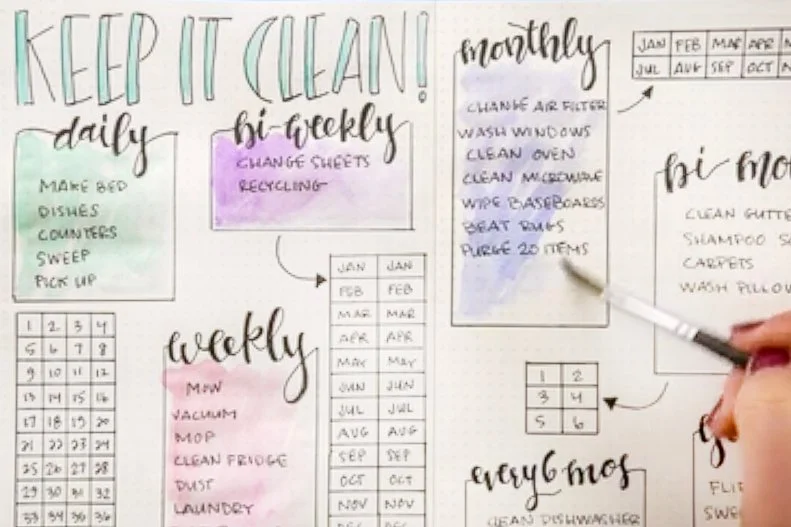 KEEP IT CLEAN!
daily
MAKE BED
DISHES
COUNTERS
SWEEP
PICK UP
bi-weekly
CHANGE SHEETS
RECYCLING
monthly
CHANGE AIR FILTER
WASH WINDOWS
CLEAN OVEN
CLEAN MICROWAVE
WIPE BASEBOARDS
BEAT RUGS
PURGE 20 ITEMS
JAN FEB MAR APR
JUL AUG SEP OCT
bi
CLEAN
SHAMPOO
CARPETS
WASH
1 2 3 4
5 6 7 8
9 10 11 12
13 14 15 16
17 18 19 20
21 22 23 24
25 26 27 28
29 30 31 32
33 34 35 36
weekly
MOW
VACUUM
MOP
CLEAN FRIDGE
DUST
LAUNDRY
JAN JAN
FEB FEB
MAR MAR
APR APR
MAY MAY
JUN JUN
JUL JUL
AUG AUG
SEP SEP
OCT OCT
NOV NOV
DEC DEC
1 2
3 4
5 6
every 6 mos
CLEAN DISHWASHER